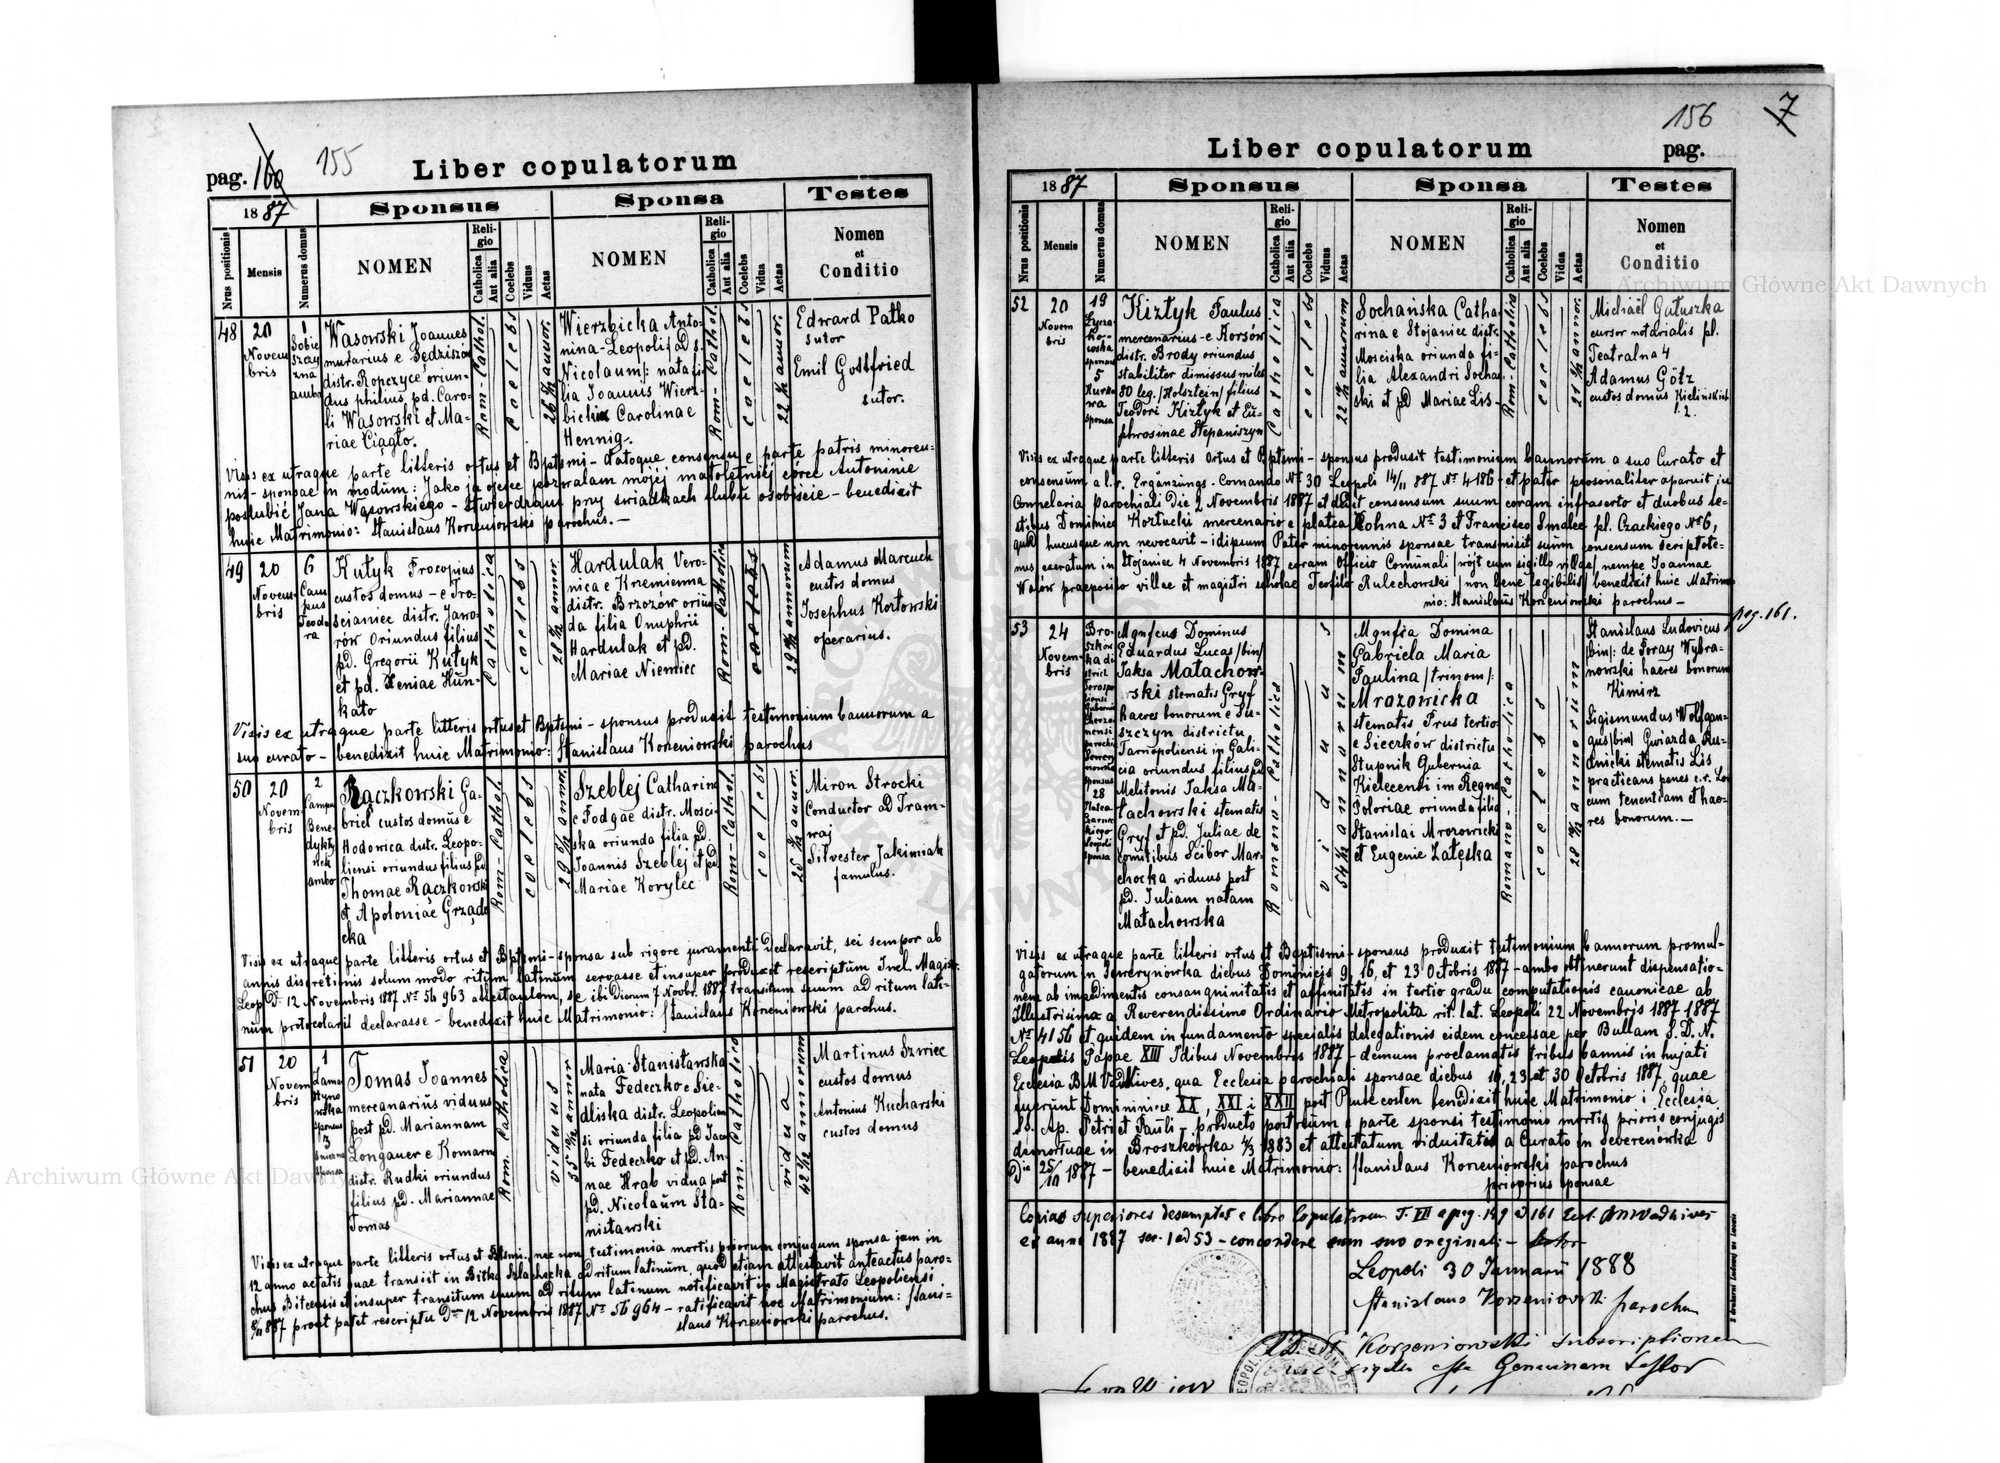 pag. 160 155 Liber copulatorum
1887 Sponsus Sponsa Testes
Nrus positionis Mensis Numerus domus NOMEN Religio Catholica Aut alia Coelebs Viduus Aetas NOMEN Religio Catholica Aut alia Coelebs Vidua Aetas Nomen et Conditio
48 20 Novembris 1 ambo
Wasowski Joannes
murarius e Sędziszów
distr. Ropczyce oriun-
dus philius pd. Caro-
li Wasowski et Ma-
riae Ciągło.
Rom-Cathol.
coelebs
Wierzbicka Anto-
nina-Leopoli ad S.
Nicolaum: nata fi-
lia Joannis Wierz-
bicki Carolinae
Hennig-
Rom-Cathol.
coelebs
Edward Patko
sutor
Emil Gottfried
sutor.
Visis ex utraque parte litteris ortus et Bptsmi-datoque consensu e parte patris minoren-
nis-sponsae in modum: Jako ja ojciec pozwalam mojej małoletniej córce Antoninie
poślubić Jana Wąsowskiego - stwierdzam przy świadkach ślubu osobiście - benedixit
huic Matrimonio: Stanislaus Korzeniowski parochus.-
49 20 Novembris 6 Campus Teodora
Kutyk Procopius
custos domus - e Tro-
ścianiec distr. Jawo-
rów Oriundus filius
pd. Gregorii Kutyk
et pd. Xeniae Hun-
kato
Catholica
coelebs
Hardulak Vero-
nica e Krzemienna
distr. Brzozów oriun-
da filia Onuphrii
Hardulak et pd.
Mariae Niemiec
Rom-Catholica
coelebs
Adamus Marcuch
custos domus
Josephus Kortowski
operarius.
Visis ex utraque parte litteris ortus et Bptsmi-sponsus produxit testimonium bannorum a
suo curato - benedixit huic Matrimonio: Stanislaus Korzeniowski parochus
50 20 Novembris 2 ambo
Rączkowski Ga-
briel custos domus e
Hodowica distr. Leopo-
liensi oriundus filius pd.
Thomae Rączkowski
et Apoloniae Grząde
cka
Rom-Cathol.
coelebs
Szeblej Catharina
e Podgać distr. Mosci-
ska oriunda filia pd.
Joannis Szeblej et pd
Mariae Korylec
Rom-Cathol.
coelebs
Miron Strocki
Conductor ad Tram-
waj
Silvester Jakimiak
famulus.
Visis ex utraque parte litteris ortus et Bptsmi-sponsa sub rigore juramenti declaravit, sei semper ab
annis discretionis solum modo ritum latinum servasse et insuper produxit rescriptum Incl. Magistr.
Leop. Do 12 Novembris 1887 No 56963 attestantem, se ibi Dierum 7 Novbr. 1887 transitum suum ad ritum lati-
num protocolaris declarasse - benedixit huic Matrimonio: Stanislaus Korzeniowski parochus.
51 20 Novembris 1 sponsus 3 sponsa
Tomas Joannes
mercenarius viduus
post pd. Mariannam
Longauer e Komarn
distr. Rudki oriundus
filius pd. Mariannae
Tomas
Rom. Catholica
viduus
Maria Stanisławska
nata Fedeczko e Sie-
dliska distr. Leopolien
si oriunda filia pd Jaco
bi Fedeczko et pd. An-
nae Hrab vidua post
pd. Nicolaum Sta-
nisławski
Rom. Catholica
vidua
Martinus Szwiec
custos domus
Antonius Kucharski
custos domus
Visis ex utraque parte litteris ortus et Bptsmi. nec non testimonia mortis priorum conjugum sponsa jam in
12 anno aetatis suae transiit in Bitka Szlachecka ad ritum latinum, quod etiam attestavit anteactus paro-
chus Bitcensis et insuper transitum suum ad ritum latinum notificavit in Magistrato Leopoliensi
8/11 887 prout patet rescripta Do 12 Novembris 1887 No 56964 - ratificavit hoc Matrimonium: Stani-
slaus Korzeniowski parochus.
156 7
Liber copulatorum pag.
1887 Sponsus Sponsa Testes
Nrus positionis Mensis Numerus domus NOMEN Religio Catholica Aut alia Coelebs Viduus Aetas NOMEN Religio Catholica Aut alia Coelebs Vidua Aetas Nomen et Conditio
52 20 Novembris 19 Łyczakowska sponsus 5 sponsa
Kiztyk Paulus
mercenarius-e Korsów
distr. Brody oriundus
stabiliter dimissus miles
80 leg. /Holsztein/ filius
Teodori Kiztyk et Eu-
phrosinae Stepaniszyn
Catholica
coelebs
22 annorum
Sochańska Catha-
rina e Stojaniec distr.
Mosciska oriunda fi-
lia Alexandri Socha-
ński et pd Mariae Lis-
Rom-Catholica
coelebs
Michael Gatuszka
cursor notarialis pl.
Teatralna 4
Adamus Götz
custos domus Kielińskich
l. 2.
Visis ex utraque parte litteris Ortus et Bptsmi-sponsus produxit testimonium bannorum a suo Curato et
consensum a l. v. Ergänzungs-Comando No 30 Leopoli 14/11 887 No 4186-et pater personaliter aparuit in
Connelaria parochiali Die 2 Novembris 1887 et dedit consensum suum coram infrascrto et duobus te-
stibus Dominico Koztucki mercenario e platea Kohna No 3 et Francisco Smalec pl. Czackiego No 6,
quae hucusque non revocavit - idipsum Pater minorennis sponsae transmisit suum consensum scriptote-
nus exaratum in Stojanice 4 Novembris 1887 coram Officio Comunali /wójt cum sigillo villae/ nempe Joannae
Watów praeposito villae et magistri scholae Teofilo Rulechowski /non bene legibilis/ benedixit huic Matrimo-
nio: Stanislaus Korzeniowski parochus-
pag. 161.
53 24 Novembris sponsus 28 sponsa
Mgnfcus Dominus
Eduardus Lucas /bin/
Jaksa Małachow-
ski stematis Gryf
haeres bonorum e Su-
szczyn districtu
Tarnopoliensi in Gali-
cia oriundus filius pd
Melitonis Jaksa Ma-
łachowski stematis
Gryf et pd. Juliae de
comitibus Scibor Mar-
chocka viduus post
pd. Juliam natam
Małachowska
Romano-Catholica
viduus
Mgnfca Domina
Gabriela Maria
Paulina /trinom/:
Mrozowicka
stematis Prus tertio
e Sieczków districtu
Stupnik Gubernia
Kielecensi in Regno
Poloriae oriunda filia
Stanislai Mrozowicki
et Eugenie Załęska
Romano-Catholica
coelebs
Stanislaus Ludovicus
/bin/: de Poray Wybra-
nowski haeres bonorum
Kimirz
Sigismundus Wolfgan-
gus /bin/ Gwiazda Ru-
dnicki stematis Lis
practicans penes c.r. Lo-
cum tenentiam et hae-
res bonorum.-
Visis ex utraque parte litteris ortus et Baptismi-sponsus produxit testimonium bannorum promul-
gatorum in Severynówka diebus Dominicis 9, 16, et 23 Octobris 1887-ambo obtinerunt dispensatio-
nem ab impedimentis consanguinitatis et affinitatis in tertio gradu computationis canonicae ab
Illustrissima a Reverendissimo Ordinario Metropolita rit. lat. Leopoli 22 Novembris 1887 1887
No 4156 et quidem in fundamento specialis delegationis eidem concessae per Bullam S.D.N.
Leopolis Papae XIII Idibus Novembris 1887-demum proclamatis tribus bannis in hujati
Ecclesia B.M.V. ad Nives, qua Ecclesia parochiali sponsae diebus 16, 23 et 30 Octobris 1887, quae
fuerunt Domininice XX, XXI i XXII post Pentecosten benedixit huic Matrimonio i Ecclesia
SS. Ap. Petri et Pauli-producto post reum e parte sponsi testimonio mortis prioris conjugis
demortuae in Broszkówka 4/3 1883 et attestatum viduitatis a Curato in Severenówka
Die 25/10 1887 - benedixit huic Matrimonio: Stanislaus Korzeniowski parochus
proprius sponsae
Copias superiores desumptas e libro Copulatorum T. VII a pag. 149 ad 161 Eccl. BMV ad Nives
ex anno 1887 ser. 1 ad 53 - concordare cum suo originali -
Leopoli 30 Januarii 1888
Stanislaus Korzeniowski parochus
Korzeniowski subscriptionem
esse Genuinam testor
Archiwum Główne Akt Dawnych
Archiwum Główne Akt Dawnych